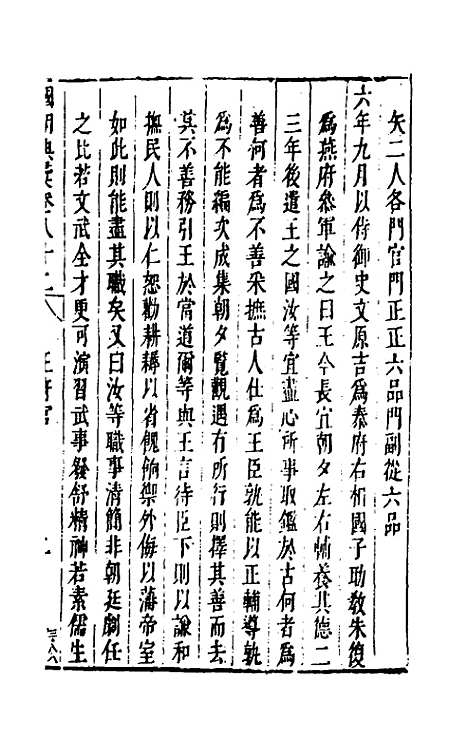 矢二人各門官門正正六品門副從六品
六年九月以侍御史文原吉爲秦府右相國子助敎朱復
爲燕府叅軍諭之曰王今長宜朝夕左右輔養其德二
三年後遣王之國汝等宜盡心所事取鑑於古何者爲
善何者爲不善采摭古人仕爲王臣孰能以正輔導孰
爲不能編次成集朝夕覽觀遇有所行則擇其善而去
其不善務引王於當道爾等與王言待臣下則以謙和
撫民人則以仁恕勸耕耨以省餽餉禦外侮以藩帝室
如此則能盡其職矣又曰汝等職事清簡非朝廷劇任
之比若文武全才更可演習武事發舒精神若素儒生
國朝典彙卷八十二 王府官 二